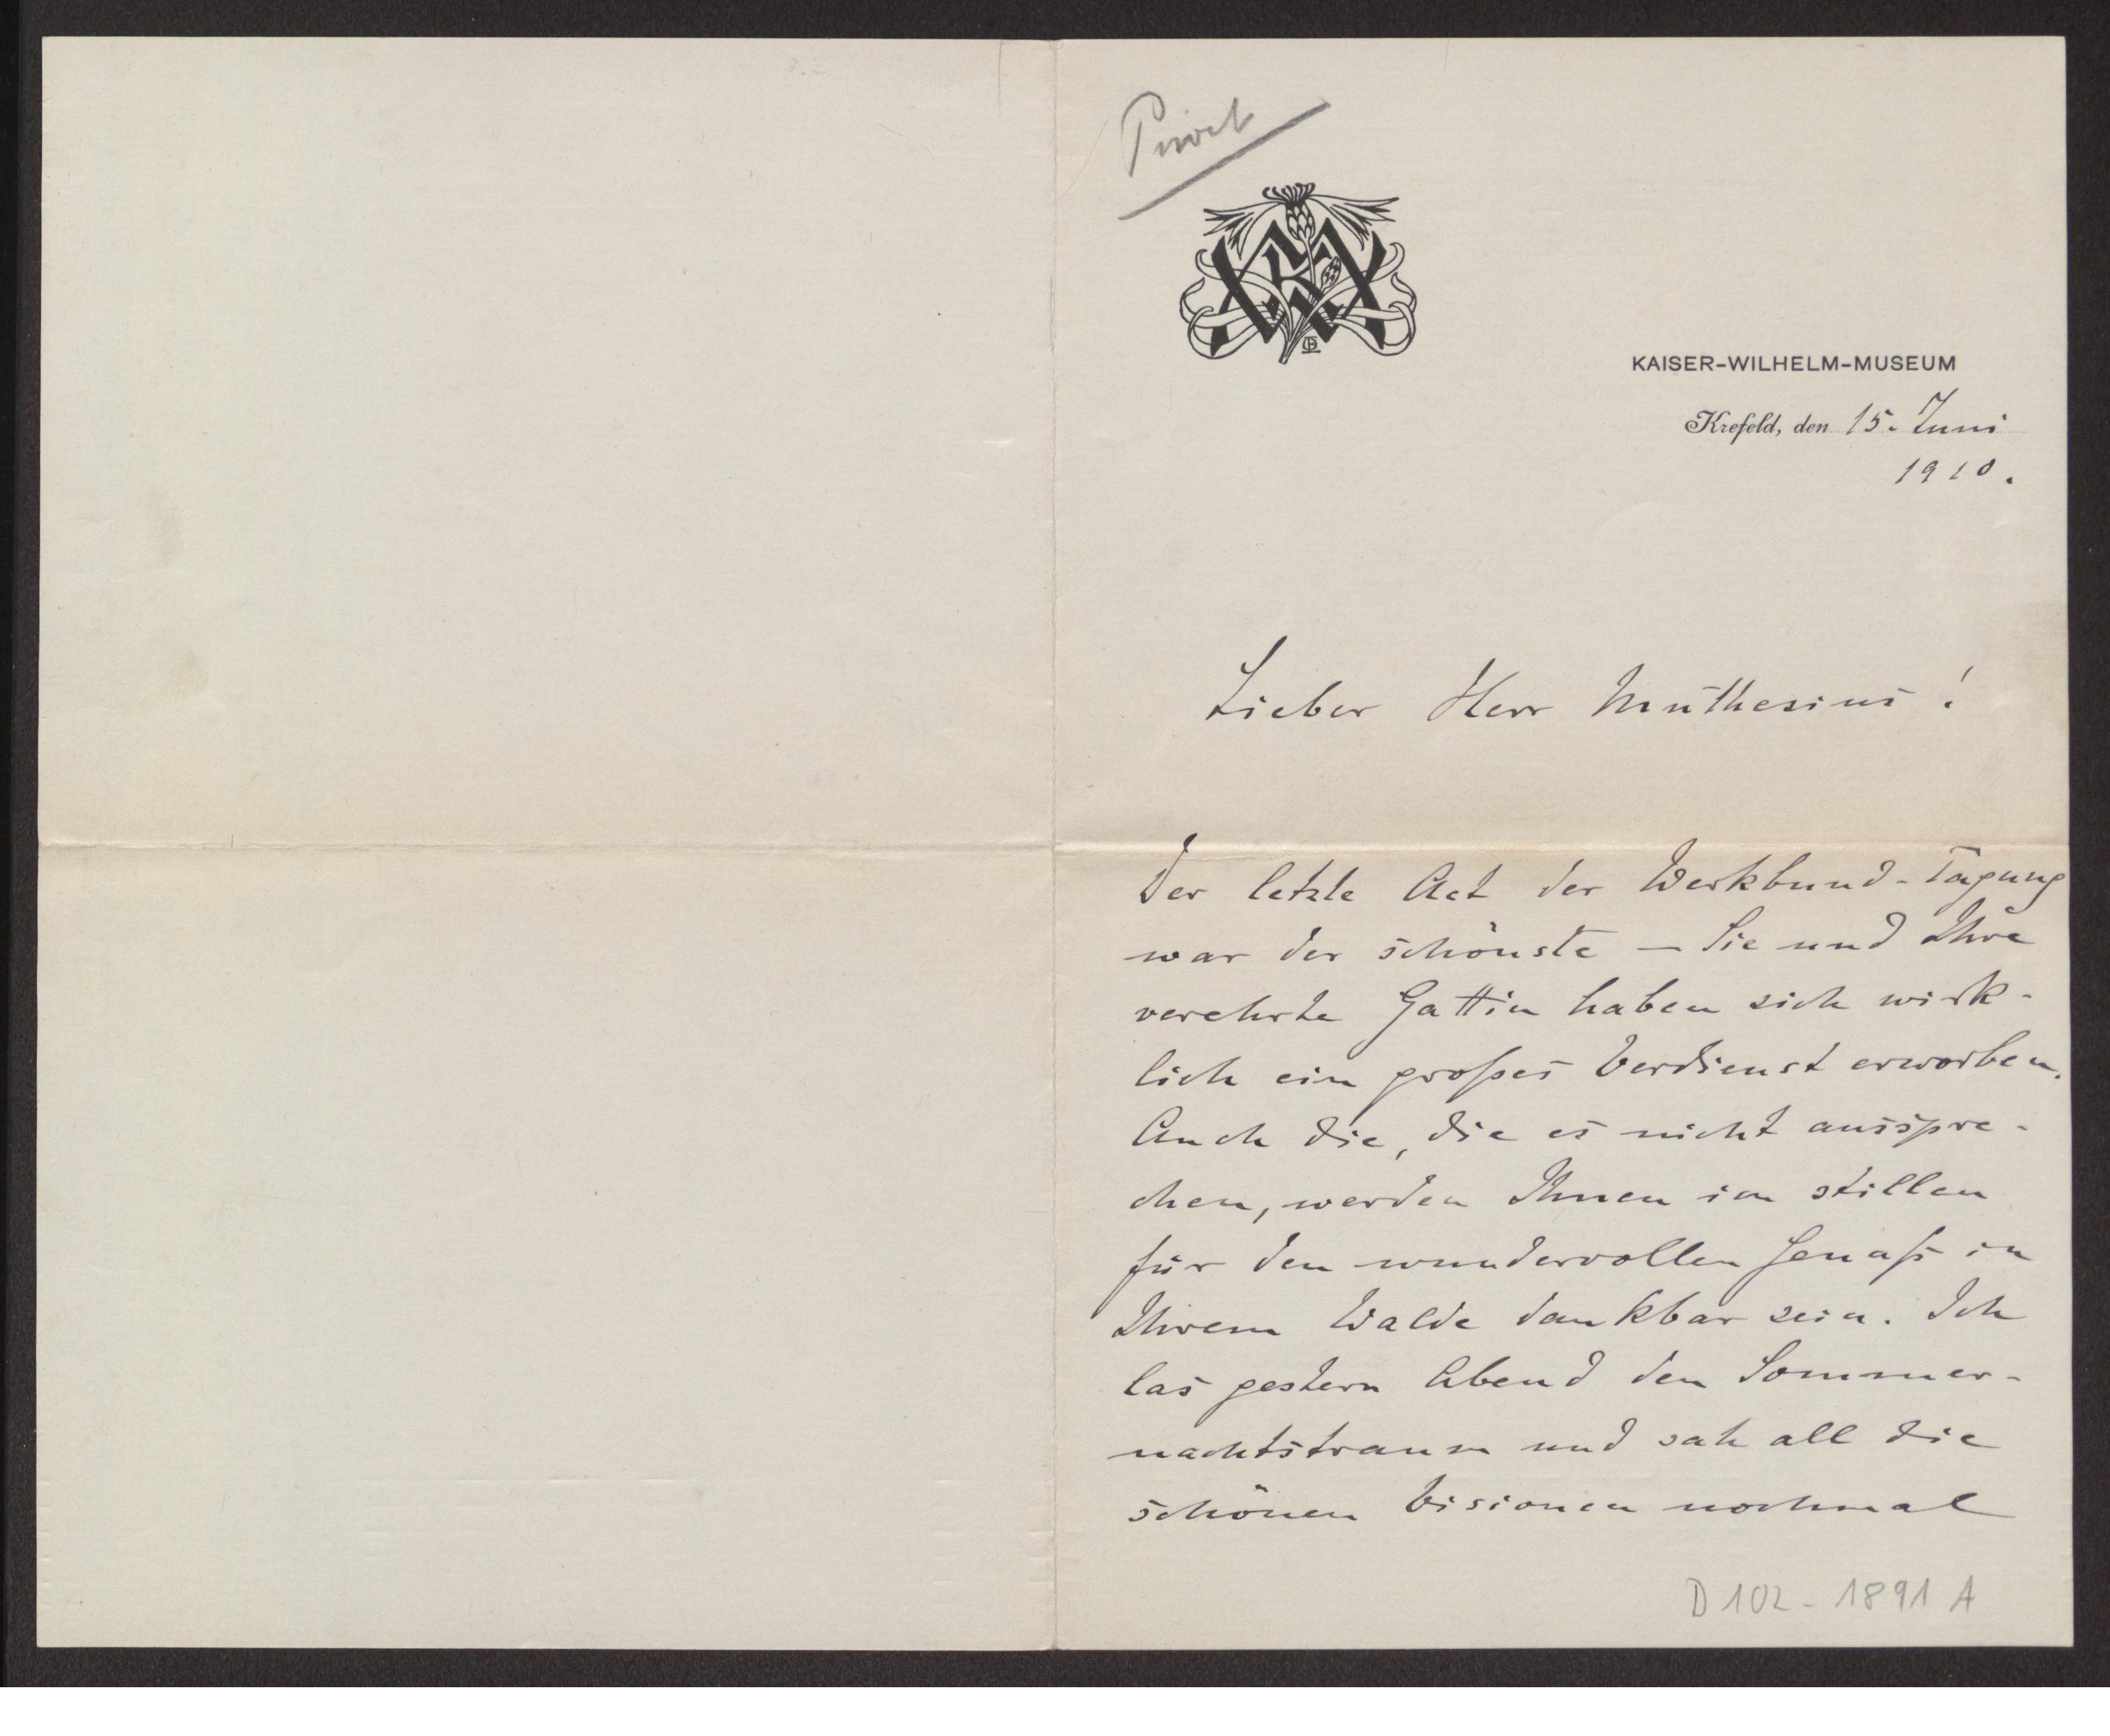 Privat
KWM
KAISER-WILHELM-MUSEUM
Krefeld, den 15. Juni
1910.
Lieber Herr Muthesius!
Der letzte Act der Werkbund-Tagung
war der schönste — Sie und Ihre
verehrte Gattin haben sich wirk-
lich ein großes Verdienst erworben.
Auch die, die es nicht ausspre-
chen, werden Ihnen im stillen
für den wundervollen Genuß in
Ihrem Walde dankbar sein. Ich
las gestern Abend den Sommer-
nachtstraum und sah all die
schönen Visionen nochmal
D 102 - 1891 A